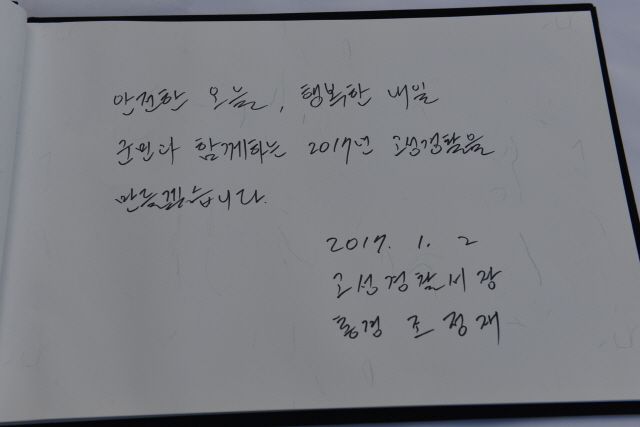 안전한 오늘, 행복한 내일
군민과 함께하는 2017년 고성경찰을
만들겠습니다.
2017. 1. 2
고성경찰서장
총경 조정재